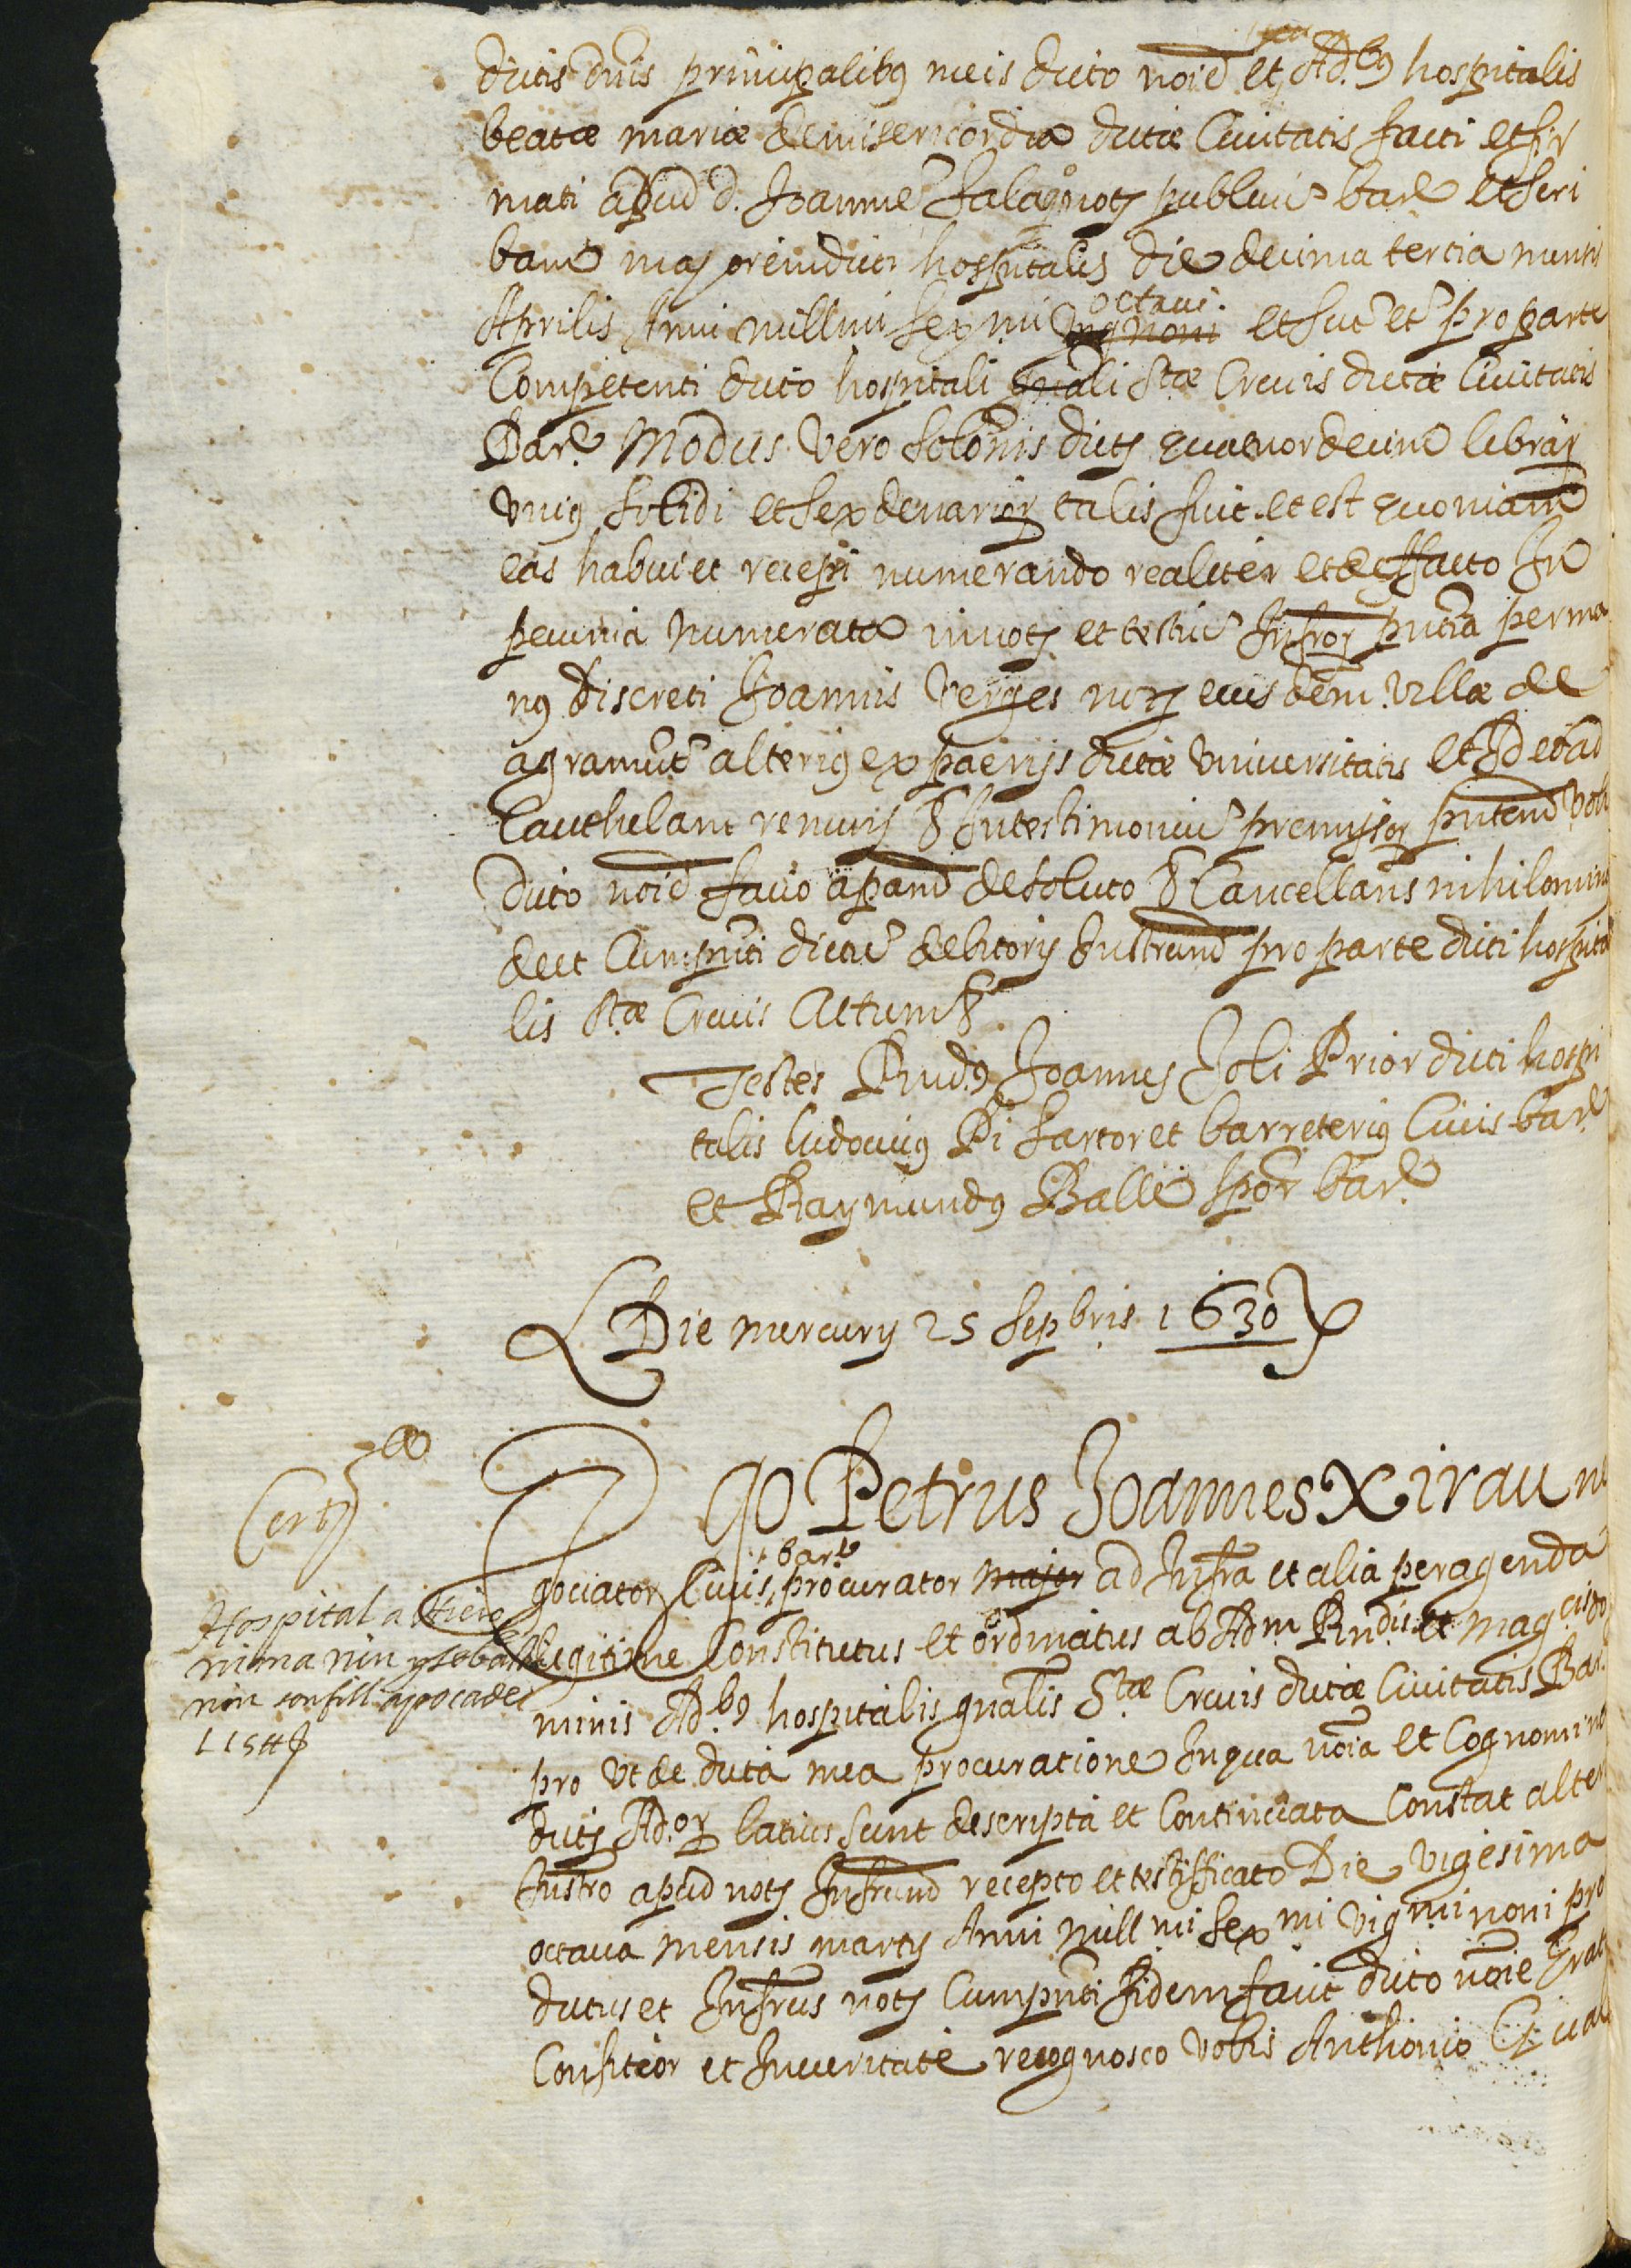 dictis dnis principalibus meis dicto noie et Ad.bus hospitalis
beatæ mariæ de misericordia dictæ Ciuitatis facti et fir
mati apud d. Joanne Sala notm publicu bare et scri
bam maiorem dicti hospitalis die decima tercia mensis
Aprilis Anni millmi sexmi octaui et sic et pro parte
Competenti dicto hospitali gnali Stæ Crucis dictæ Ciuitatis
Bare Modus vero solonis dictj quatuordecim librar
vnius solidi et sex denarior talis fuit et est quoniam
eas habui et recepi numerando realiter et de facto In
pecunia numerata in notj et testiu Infror pntia per ma
nus discreti Joannis Verges notj eiusdem villæ de
agramut alterius ex paerijs dictæ vniuersitatis Et Ideo ad
Cauthelam renuns & In testimoniu premissor pntem vobis
dicto noie facio apam de soluto & Cancellans nihilominus
de et Cum pnti dictu debitorij Instrum pro parte dicti hospita
lis Stæ Crucis Actum &
Testes Rnd.us Joannes Joli Prior dicti hospi
talis ludouicus Pi sartor et barreterius Ciuis bare
et Raymundus Balle spor bare
Die mercurij 25 Sepbris 1630
Certj
Ego Petrus Joannes Xirau ne
gociator Ciuis bare procurator major ad Infra et alia peragenda
legitime Constitutus et ordinatus ab Adm Rndis et mag.cis do
minis Ad.bus hospitalis gnalis Stæ Crucis dictæ Ciuitatis Bar.
pro vt de dicta mea procuratione In qua noia et Cognomina
dictj Ad.or latius sunt descripta et Continuata Constat alte
Instro apud notj Infrum recepto et testifficato Die vigesima
octaua mensis martij Anni millmi sexmi vigmi noni pro
dictus et Infrus notj Cum pnti fidem facit dicto noie Grat
Confiteor et In veritate recognosco vobis Anthonio
Hospital a Hiero
nima nin y sebastia
nin son fill apoca de
L15 ₶